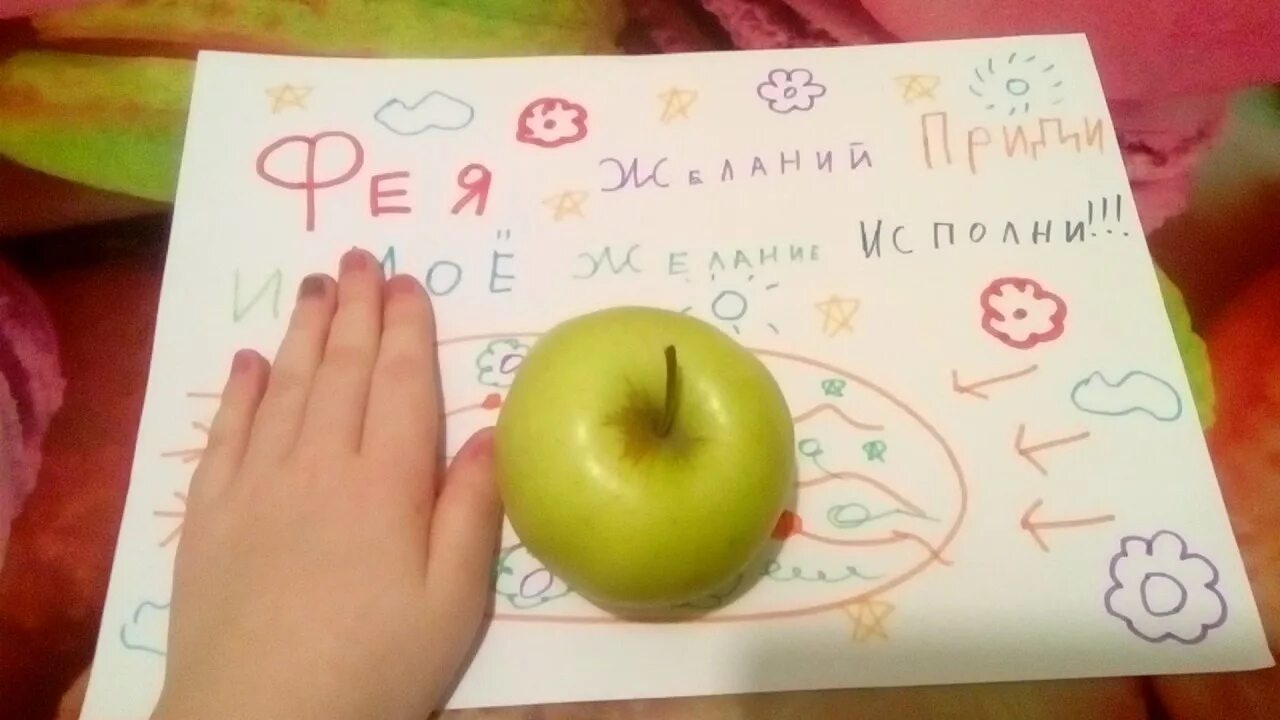 ФЕЯ ЖЕЛАНИЙ ПРИДИ
И МОЁ ЖЕЛАНИЕ ИСПОЛНИ!!!